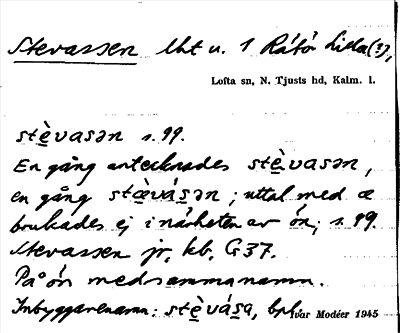 Stevassen lht u. 1 Råtör Lilla (?),
Lofta sn, N. Tjusts hd, Kalm. l.
stèvasən s. 99.
En gång antecknades stèvasən,
en gång stævásən; uttal med æ
brukades ej i närheten av ön; s. 99.
Stevassen jr, kb. G 37.
På ön med samma namn.
Inbyggarenamn: stèvása, best.
Ivar Modéer 1945